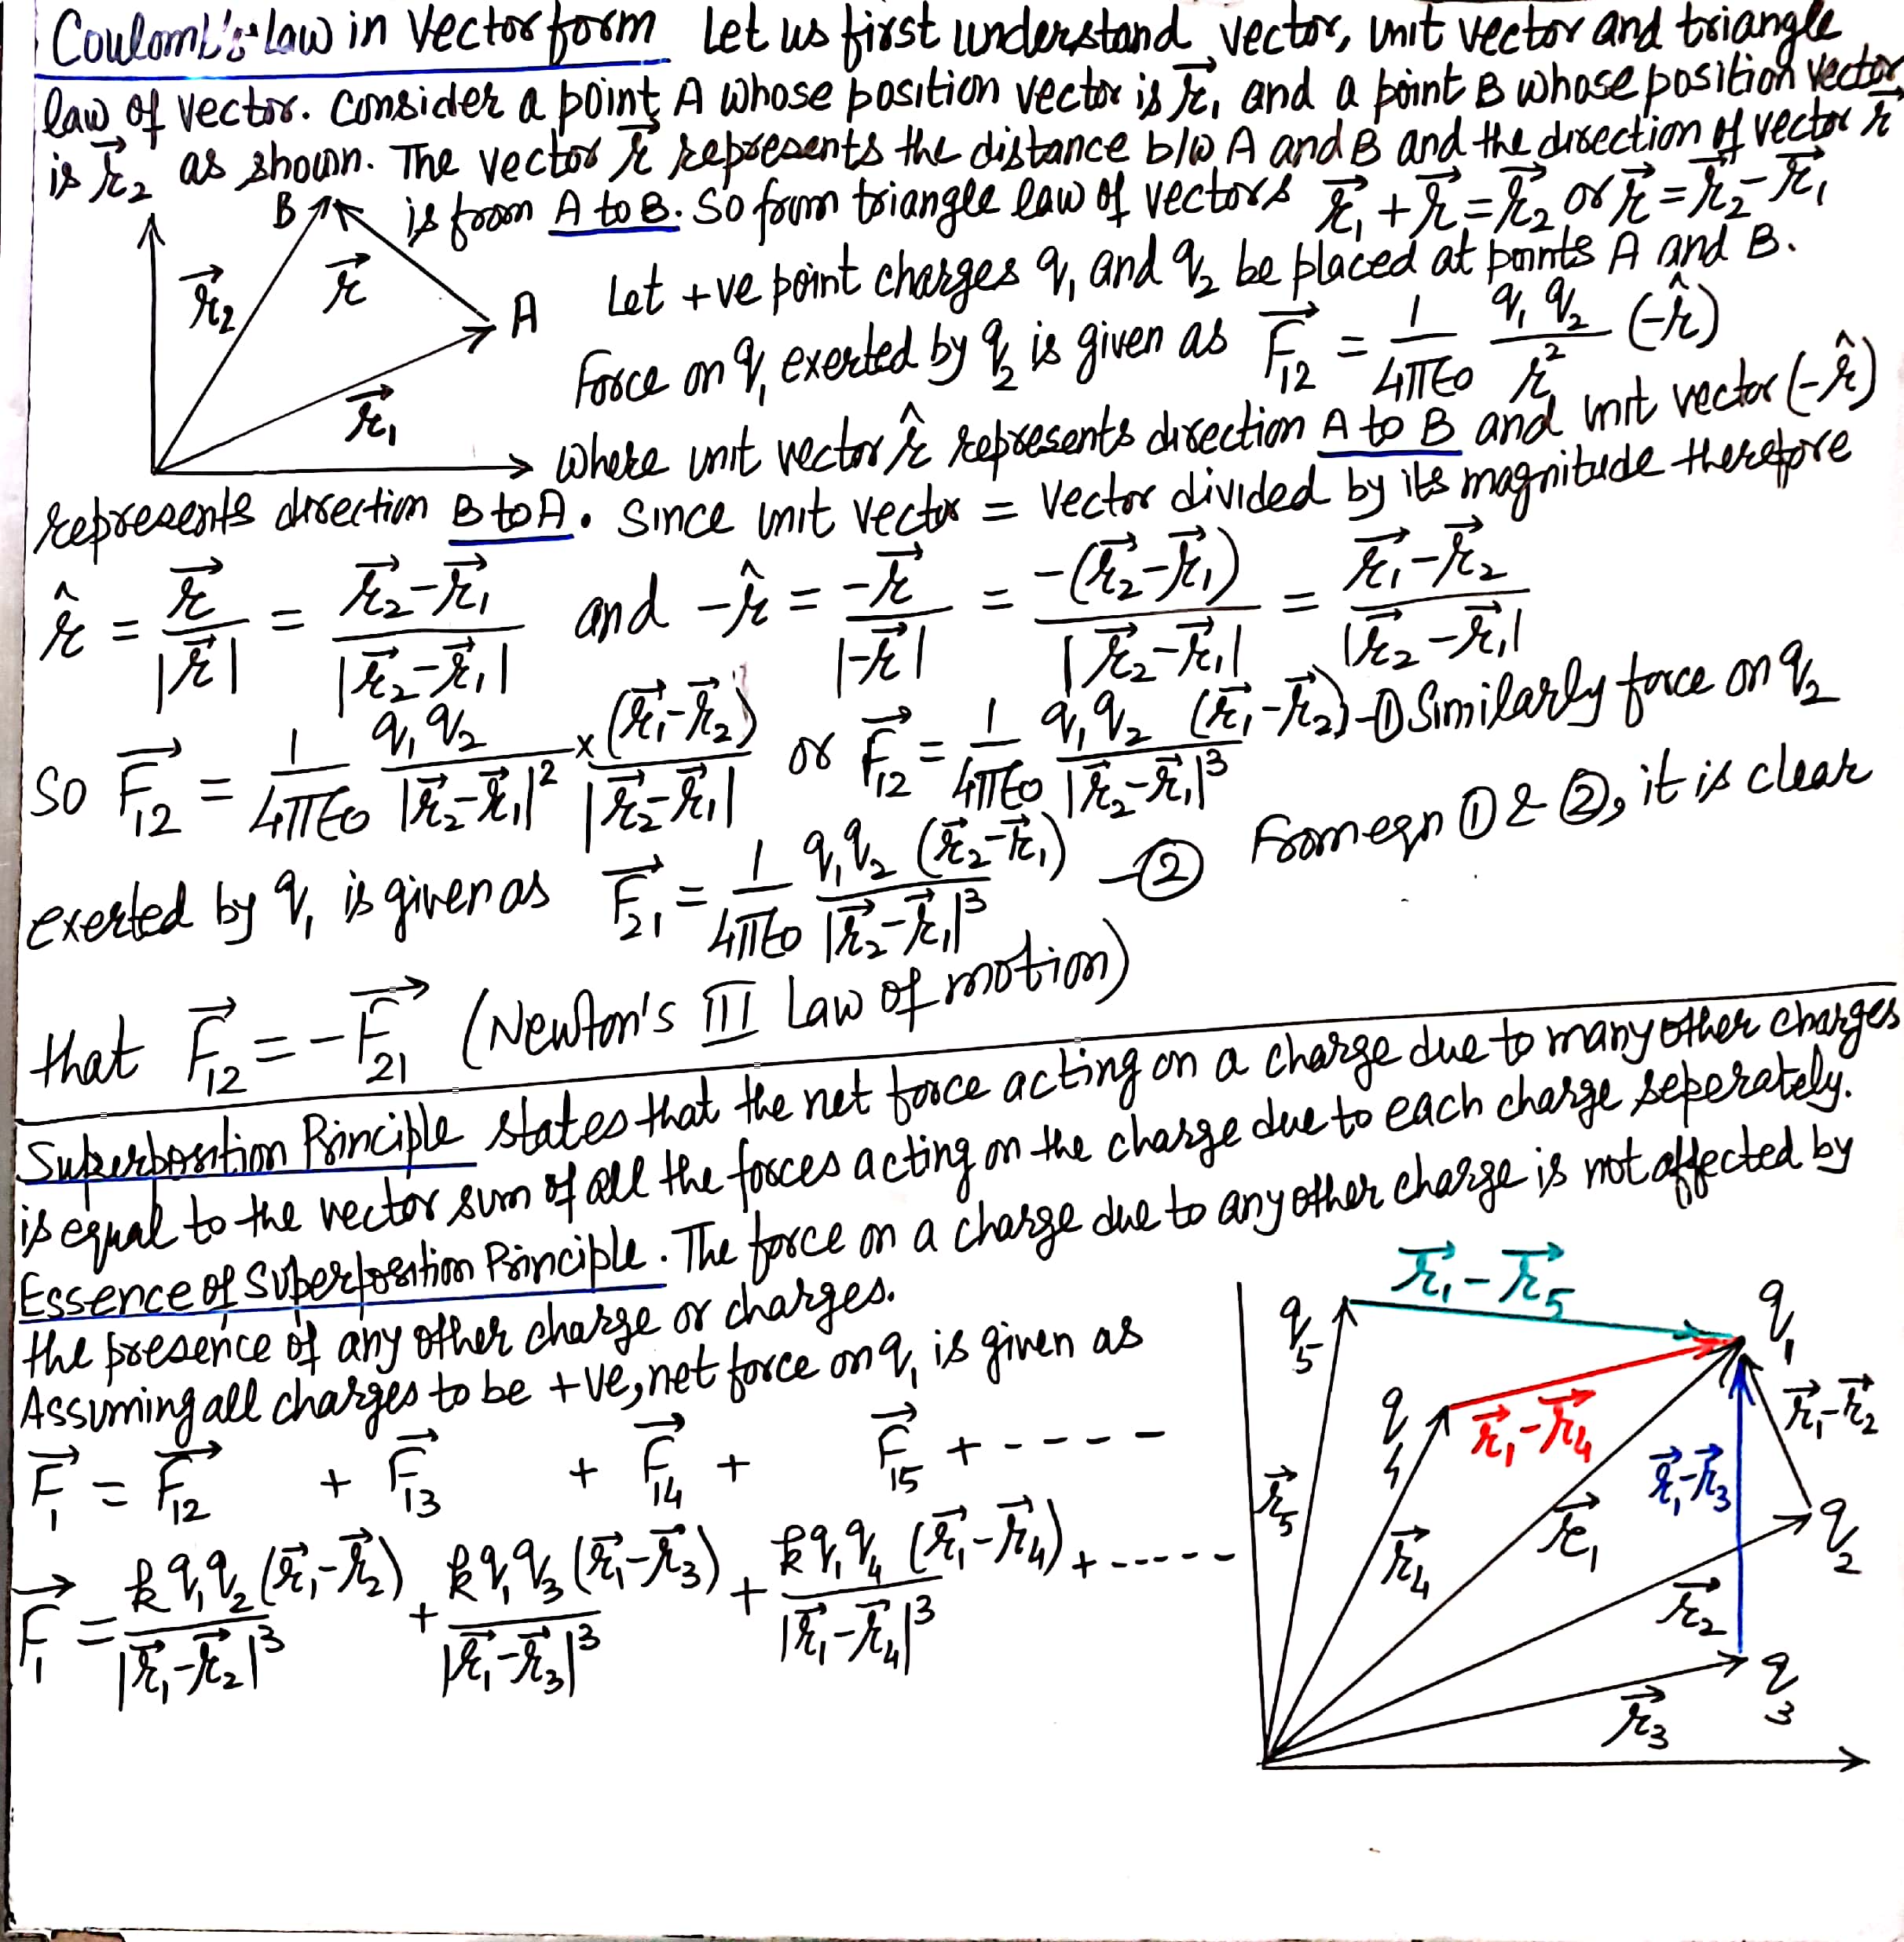 Coulomb's law in Vector form Let us first understand vector, unit vector and triangle
law of vector. Consider a point A whose position vector is r⃗₁ and a point B whose position vector
is r⃗₂ as shown. The vector r⃗ represents the distance b/w A and B and the direction of vector r⃗
is from A to B. So from triangle law of vectors r⃗₁ + r⃗ = r⃗₂ or r⃗ = r⃗₂ - r⃗₁
B
r⃗₂
r⃗
A
r⃗₁
Let +ve point charges q₁ and q₂ be placed at points A and B.
Force on q₁ exerted by q₂ is given as F⃗₁₂ = 1/4πε₀ q₁q₂/r² (-r̂)
where unit vector r̂ represents direction A to B and unit vector (-r̂)
represents direction B to A. Since unit vector = vector divided by its magnitude therefore
r̂ = r⃗/|r⃗| = (r⃗₂-r⃗₁)/|r⃗₂-r⃗₁| and -r̂ = -r⃗/|-r⃗| = -(r⃗₂-r⃗₁)/|r⃗₂-r⃗₁| = (r⃗₁-r⃗₂)/|r⃗₂-r⃗₁|
So F⃗₁₂ = 1/4πε₀ q₁q₂/|r⃗₂-r⃗₁|² × (r⃗₁-r⃗₂)/|r⃗₂-r⃗₁| or F⃗₁₂ = 1/4πε₀ q₁q₂ (r⃗₁-r⃗₂)/|r⃗₂-r⃗₁|³ -① Similarly force on q₂
exerted by q₁ is given as F⃗₂₁ = 1/4πε₀ q₁q₂ (r⃗₂-r⃗₁)/|r⃗₂-r⃗₁|³ -② From eqn ① & ②, it is clear
that F⃗₁₂ = -F⃗₂₁ (Newton's III Law of motion)
Superposition Principle states that the net force acting on a charge due to many other charges
is equal to the vector sum of all the forces acting on the charge due to each charge seperately.
Essence of Superposition Principle. The force on a charge due to any other charge is not affected by
the presence of any other charge or charges.
Assuming all charges to be +ve, net force on q₁ is given as
F⃗₁ = F⃗₁₂ + F⃗₁₃ + F⃗₁₄ + F⃗₁₅ + - - - -
F⃗₁ = kq₁q₂(r⃗₁-r⃗₂)/|r⃗₁-r⃗₂|³ + kq₁q₃(r⃗₁-r⃗₃)/|r⃗₁-r⃗₃|³ + kq₁q₄(r⃗₁-r⃗₄)/|r⃗₁-r⃗₄|³ + - - - - -
r⃗₁-r⃗₅
q₅
q₁
q₄
r⃗₁-r⃗₄
r⃗₁-r⃗₂
r⃗₁-r⃗₃
r⃗₅
r⃗₄
r⃗₁
q₂
r⃗₂
q₃
r⃗₃